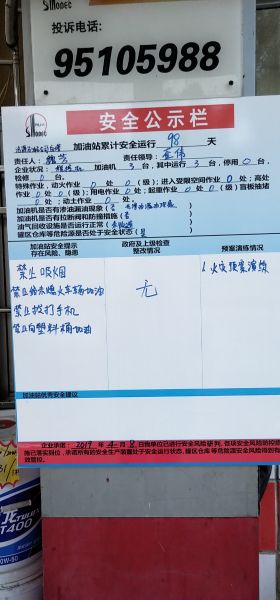 SINOPEC
投诉电话:
95105988
SINOPEC
安全公示栏
加油站累计安全运行 98 天
责任人: 魏芳 责任领导: 金伟
企业状况: 加油机 3 台,其中运行 3 台,停用 0 台,
检修 0 台。
特殊作业,动火作业 0 处 0 (级);进入受限空间作业 0 处;高处
作业 0 处 0 (级);用电作业 0 处;起重作业 0 处 0 (级);盲板抽堵
0 处;动土作业 0 处。
加油机是否有渗油漏油现象(否
加油机是否有拉断阀和防撞措施(
油气回收设施是否运行正常(
罐区仓库等危险源是否处于安全状态(是
加油站安全提示
存在风险、隐患
政府及上级检查
整改情况
预案演练情况
禁止吸烟
禁止给未熄火车辆加油
禁止拨打手机
禁止向塑料桶加油
无
1.火灾预案演练
加油站优秀安全建议
企业承诺: 2019 年 4 月 8 日我单位已进行安全风险研判,各项安全风险防控措
施已落实到位,承诺所有的安全生产装置处于安全运行状态,罐区仓库等危险源安全风险得到有
效管控。
T400